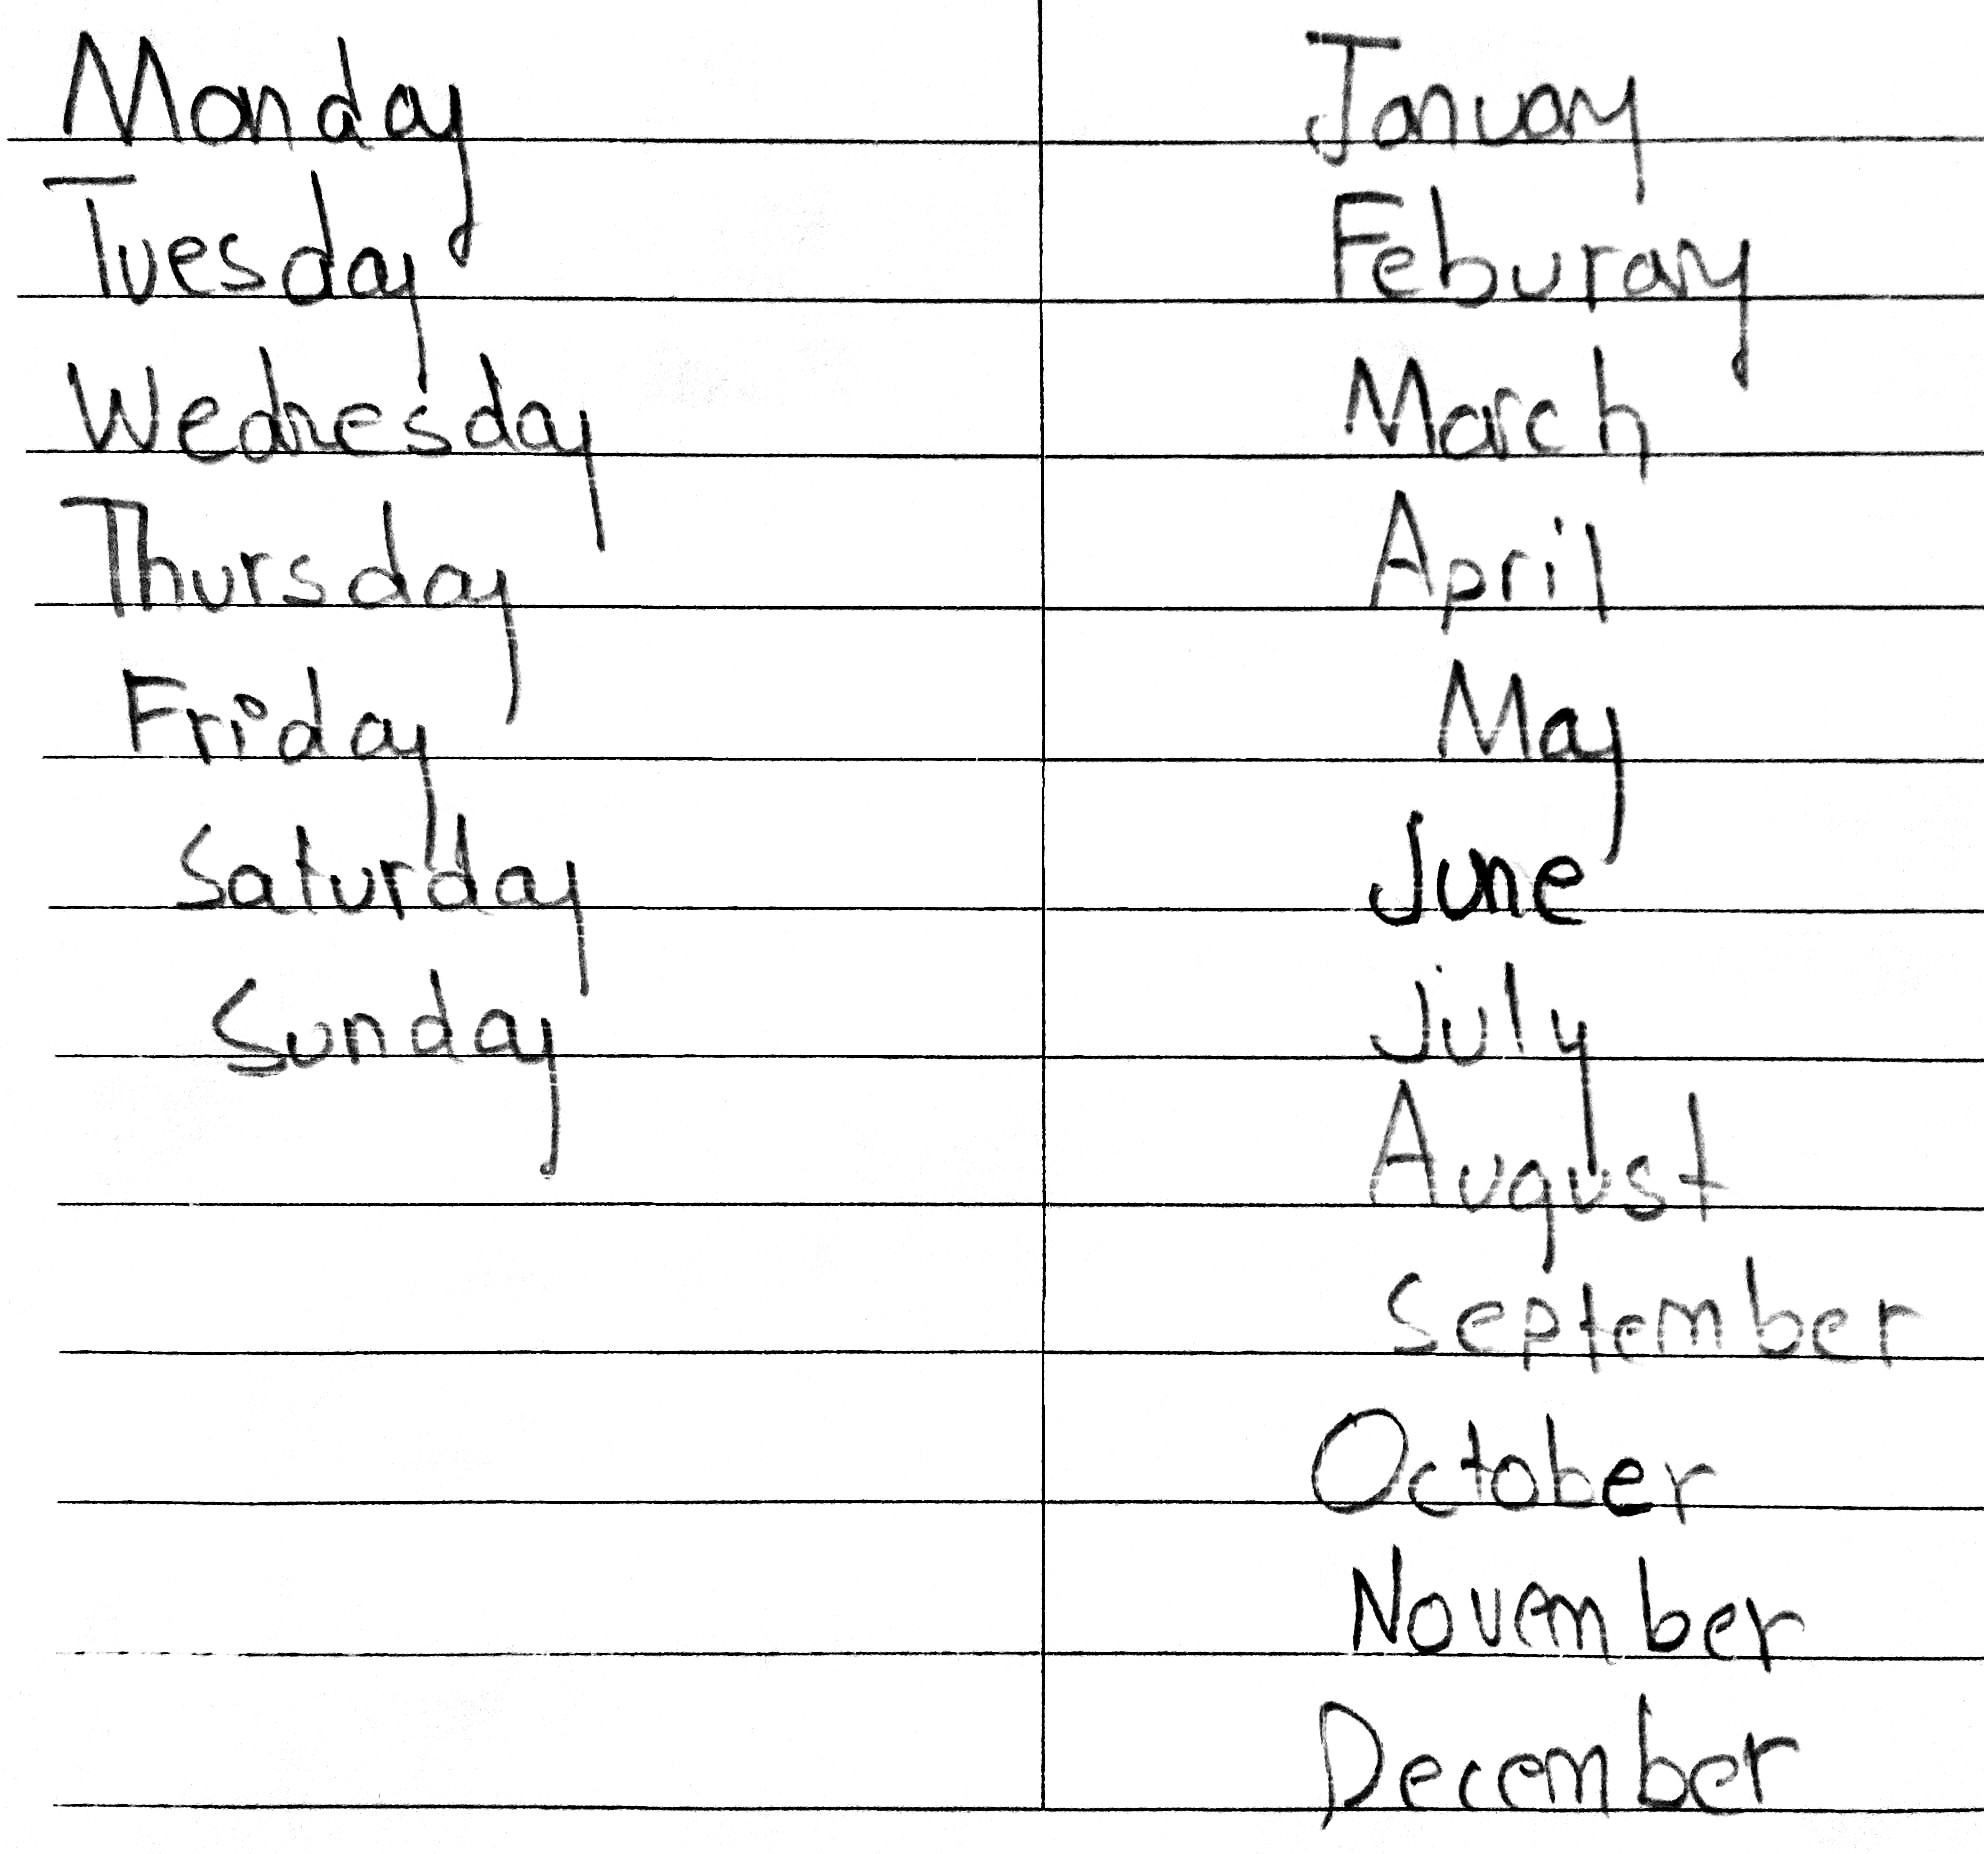 Monday
Tuesday
Wednesday
Thursday
Friday
Saturday
Sunday
January
Feburary
March
April
May
June
July
August
September
October
November
December